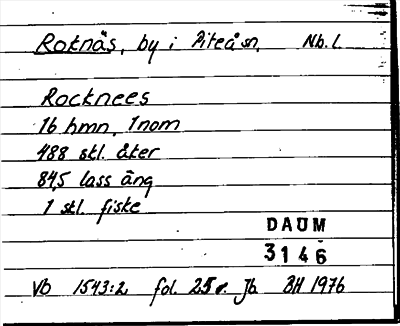 Roknäs, by i Piteå sn, Nb. l.
Rocknees
16 hmn, 1 nom
488 skl. åker
84,5 lass äng
1 skl. fiske
DAUM
3146
Vb 1543:2 fol. 25 r. Jb BH 1976